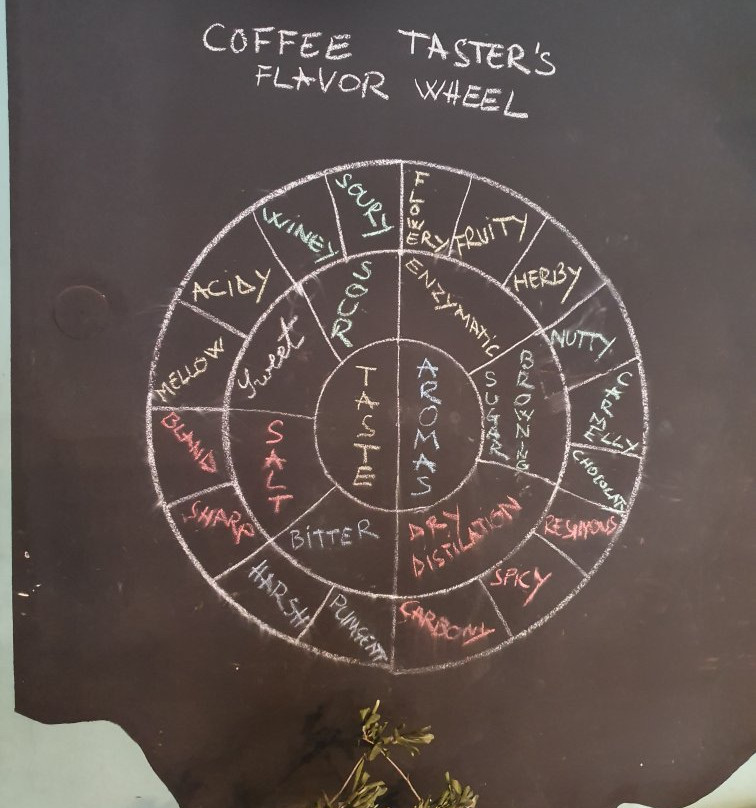 COFFEE TASTER'S
FLAVOR WHEEL
TASTE
AROMAS
SOUR
Sweet
SALT
BITTER
ENZYMATIC
SUGAR
BROWNING
DRY
DISTILATION
SOURY
WINEY
ACIDY
MELLOW
BLAND
SHARP
HARSH
PUNGENT
FLOWERY
FRUITY
HERBY
NUTTY
CARMELLY
CHOCOLATY
RESINOUS
SPICY
CARBONY